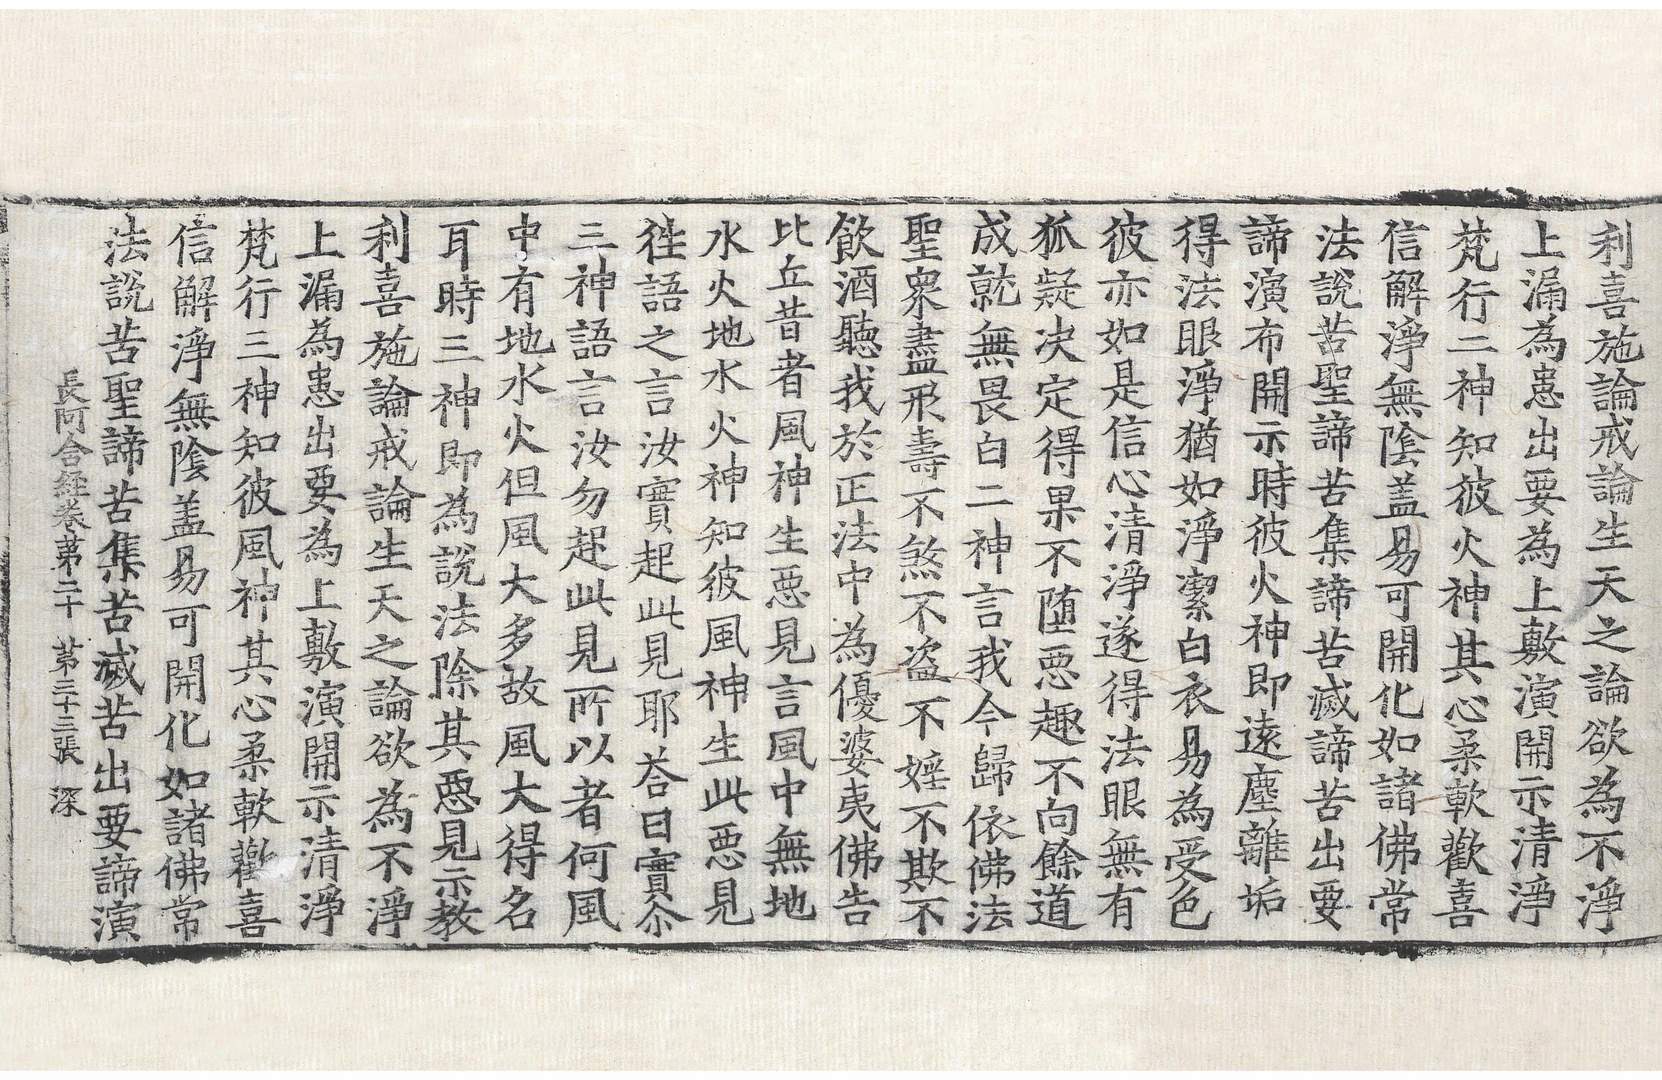 利喜施論戒論生天之論欲為不淨
上漏為患出要為上敷演開示清淨
梵行二神知彼火神其心柔軟歡喜
信解淨無陰盖易可開化如諸佛常
法說苦聖諦苦集諦苦滅諦苦出要
諦演布開示時彼火神即遠塵離垢
得法眼淨猶如淨潔白衣易為受色
彼亦如是信心清淨遂得法眼無有
狐疑决定得果不墮惡趣不向餘道
成就無畏白二神言我今歸依佛法
聖衆盡形壽不煞不盜不婬不欺不
飲酒聽我於正法中為優婆夷佛告
比丘昔者風神生惡見言風中無地
水火地水火神知彼風神生此惡見
徃語之言汝實起此見耶荅曰實尒
三神語言汝勿起此見所以者何風
中有地水火但風大多故風大得名
耳時三神即為說法除其惡見示教
利喜施論戒論生天之論欲為不淨
上漏為患出要為上敷演開示清淨
梵行三神知彼風神其心柔軟歡喜
信解淨無陰盖易可開化如諸佛常
法說苦聖諦苦集苦滅苦出要諦演
長阿含經卷第二十 第三十三張 深